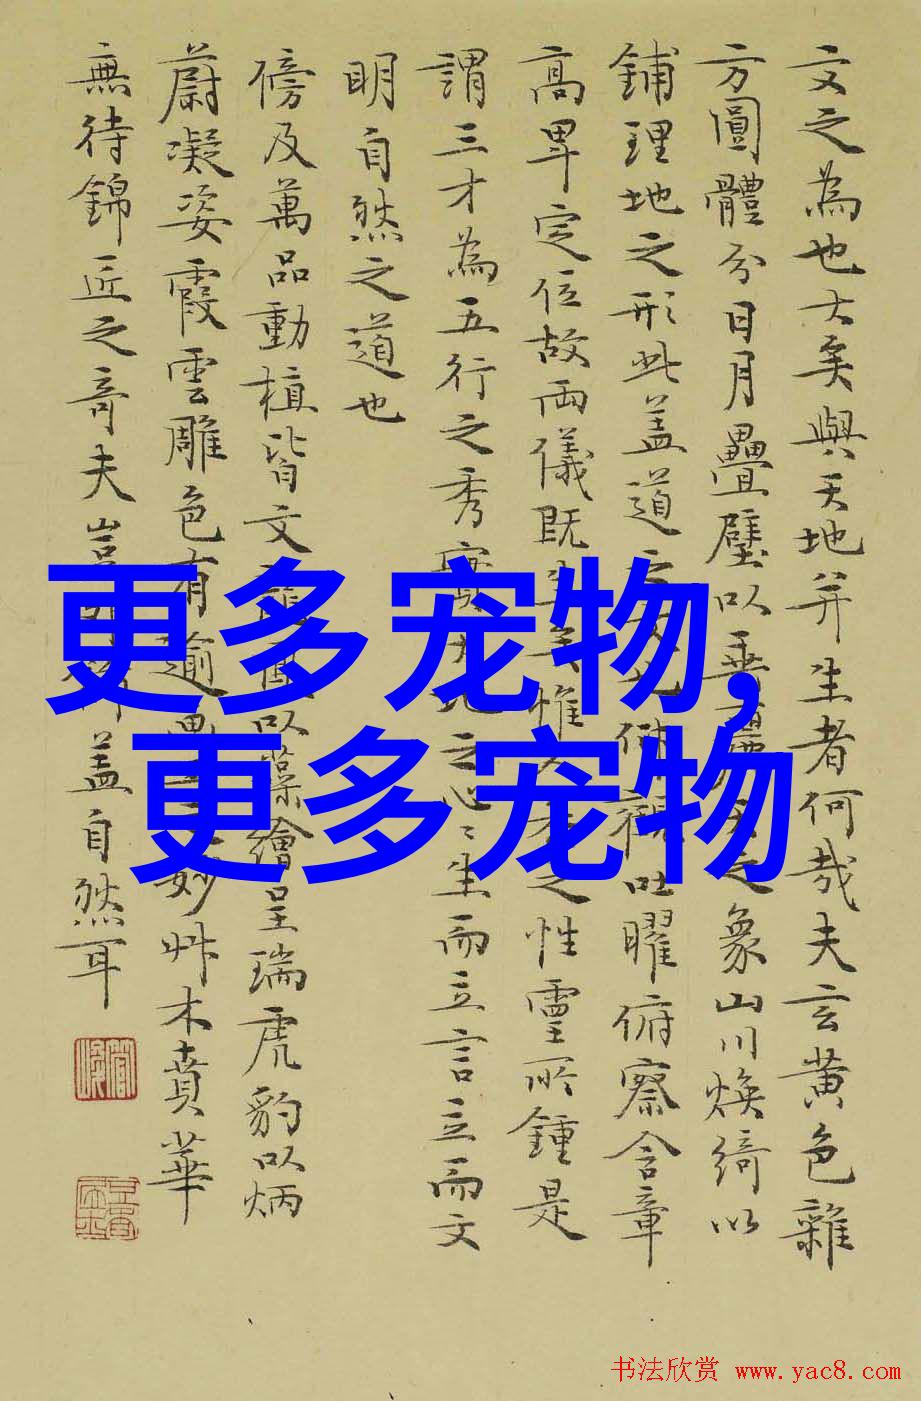 文之為也大矣與天地并生者何哉夫玄黄色雜
方圓體分日月疊壁以垂麗天之象山川煥綺以
鋪理地之形此盖道之文也仰觀吐曜俯察含章
高卑定位故兩儀既生矣惟人参之性靈所鍾是
謂三才為五行之秀實天地之心〻生而立言立而文
明自然之道也
傍及萬品動植皆文龍鳳以藻繪呈瑞虎豹以炳
蔚凝姿霞雲雕色有逾畫工之妙艸木賁華
無待錦匠之奇夫豈外飾盖自然耳
更多宠物,
更多宠物
书法欣赏 www.yac8.com